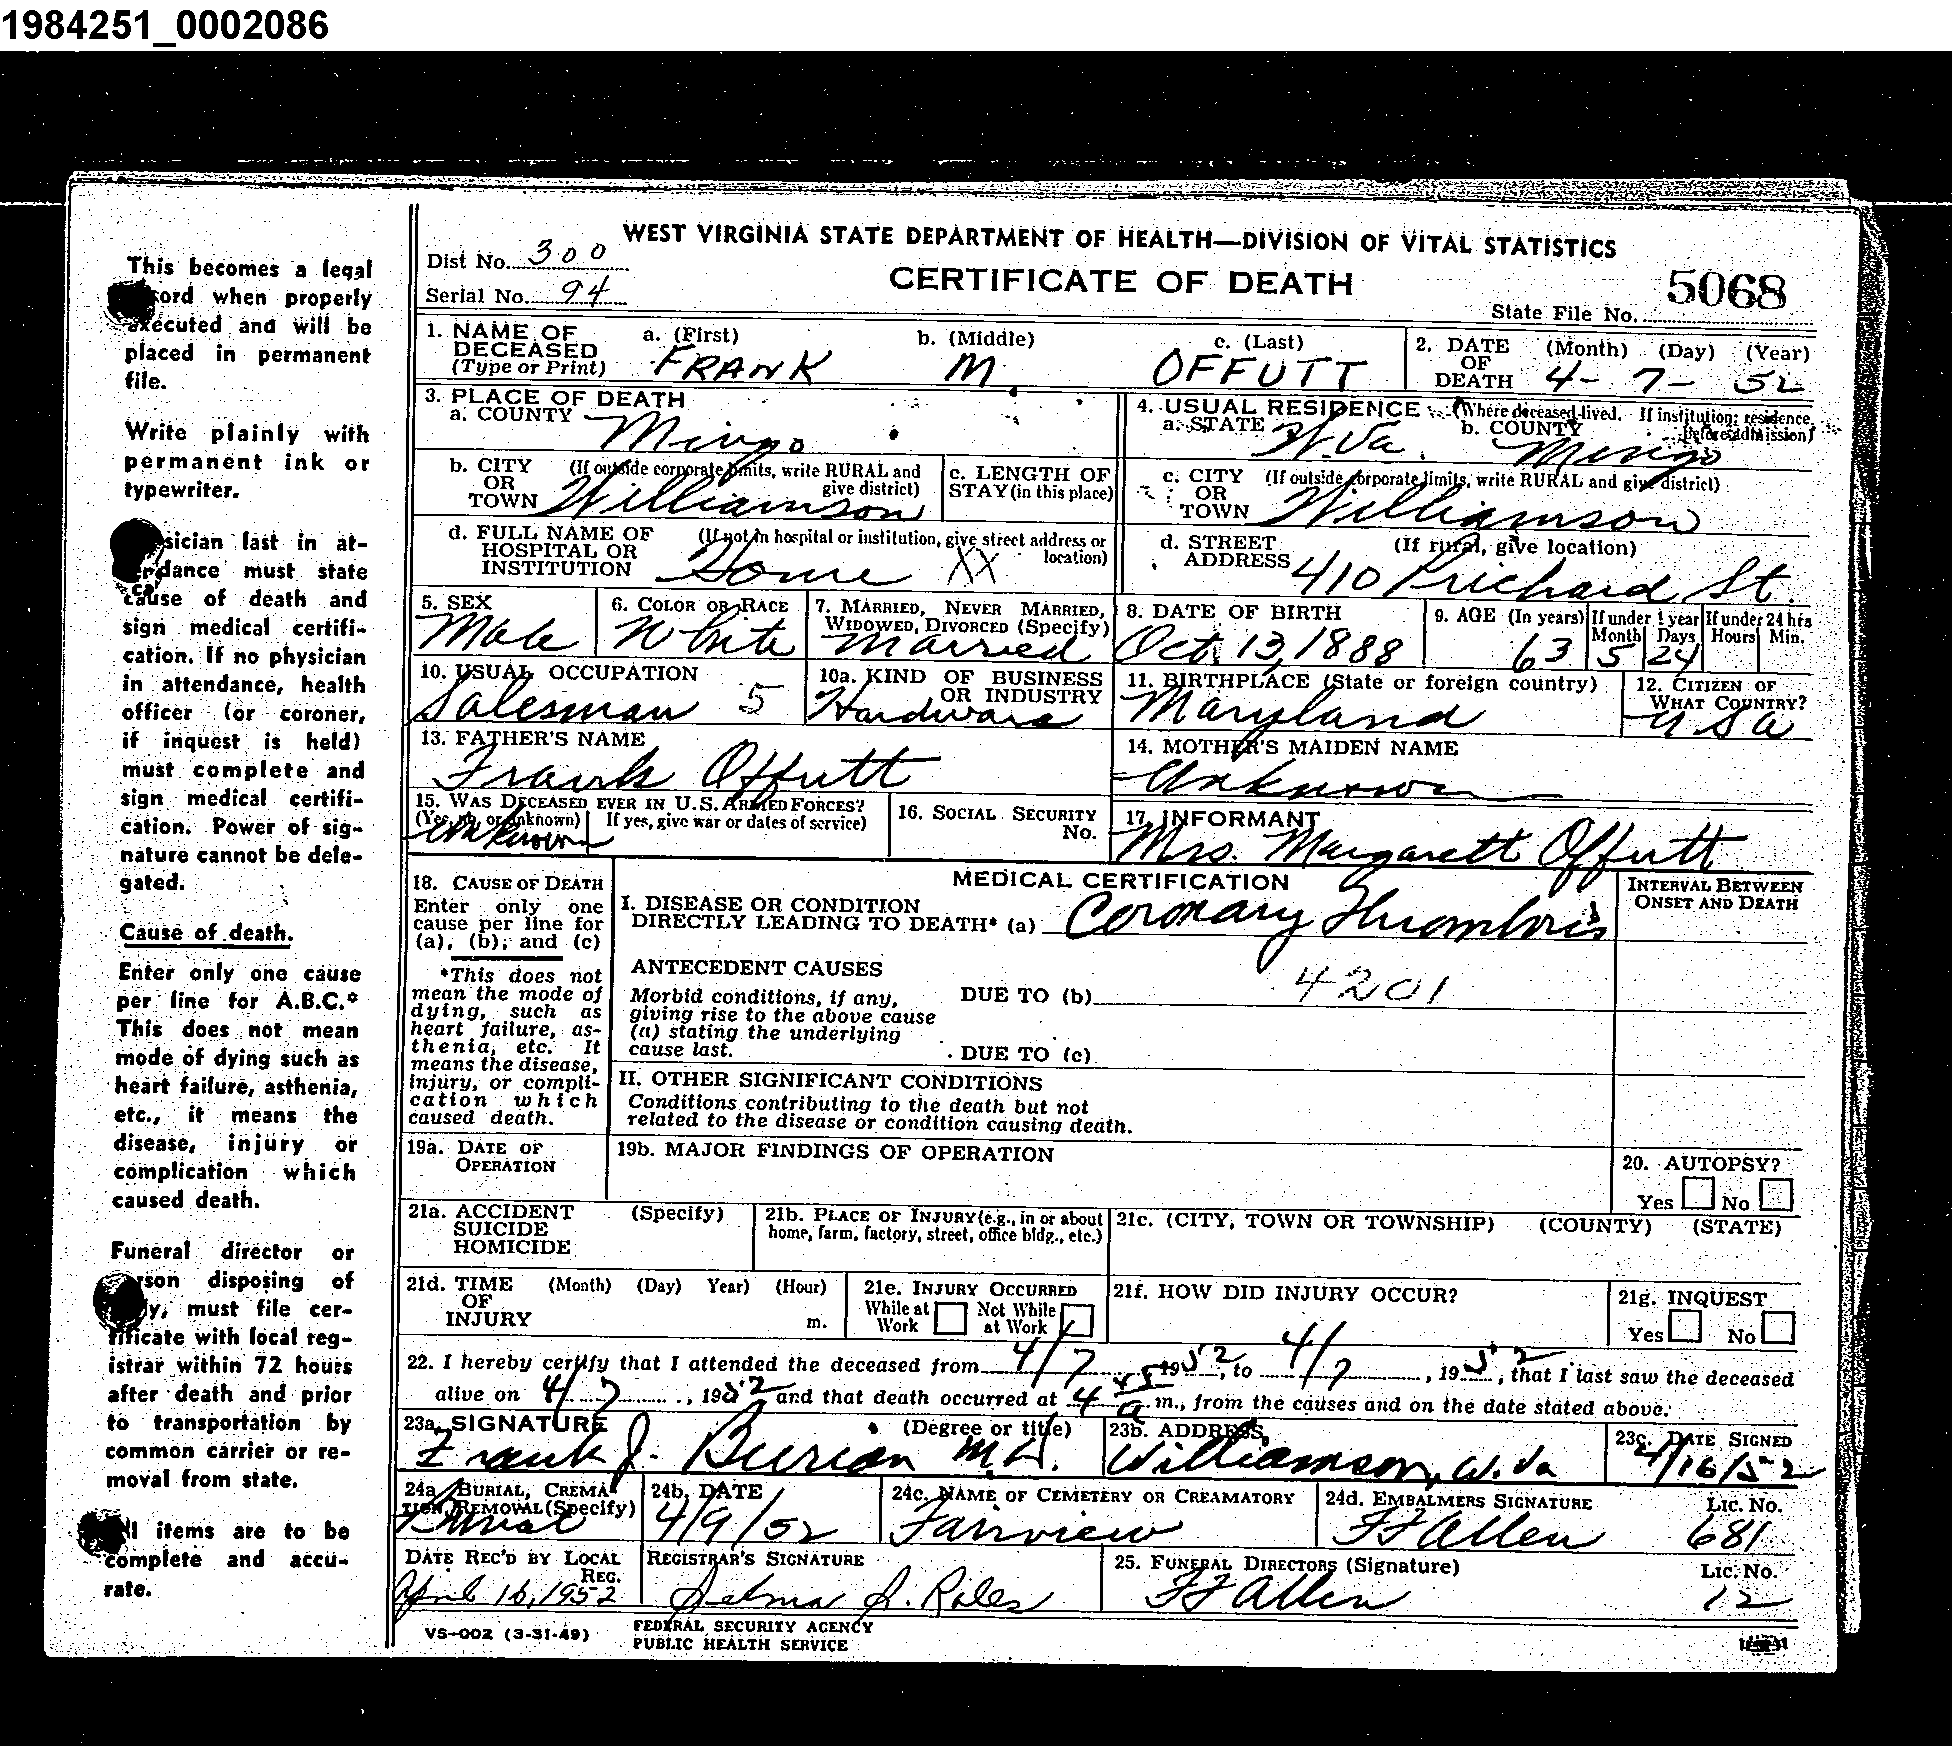 1984251_0002086
WEST VIRGINIA STATE DEPARTMENT OF HEALTH—DIVISION OF VITAL STATISTICS
Dist No. 300
CERTIFICATE OF DEATH
Serial No. 94
State File No. 5068
1. NAME OF DECEASED (Type or Print) a. (First) FRANK b. (Middle) M c. (Last) OFFUTT
2. DATE OF DEATH (Month) (Day) (Year) 4- 7- 52
3. PLACE OF DEATH
a. COUNTY Mingo
4. USUAL RESIDENCE (Where deceased lived. If institution; residence before admission)
a. STATE W.Va. b. COUNTY Mingo
b. CITY OR TOWN (If outside corporate limits, write RURAL and give district) Williamson
c. LENGTH OF STAY (in this place)
c. CITY OR TOWN (If outside corporate limits, write RURAL and give district) Williamson
d. FULL NAME OF HOSPITAL OR INSTITUTION (If not in hospital or institution, give street address or location) Home XX
d. STREET ADDRESS (If rural, give location) 410 Prichard St.
5. SEX Male
6. COLOR OR RACE White
7. MARRIED, NEVER MARRIED, WIDOWED, DIVORCED (Specify) Married
8. DATE OF BIRTH Oct. 13, 1888
9. AGE (In years) 63 If under 1 year Month 5 Days 24 If under 24 hrs Hours Min.
10. USUAL OCCUPATION Salesman 5
10a. KIND OF BUSINESS OR INDUSTRY Hardware
11. BIRTHPLACE (State or foreign country) Maryland
12. CITIZEN OF WHAT COUNTRY? USA
13. FATHER'S NAME Frank Offutt
14. MOTHER'S MAIDEN NAME Unknown
15. WAS DECEASED EVER IN U.S. ARMED FORCES? (Yes, no, or unknown) Unknown If yes, give war or dates of service)
16. SOCIAL SECURITY No.
17. INFORMANT Mrs. Margarett Offutt
18. CAUSE OF DEATH
Enter only one cause per line for (a), (b), and (c)
*This does not mean the mode of dying, such as heart failure, asthenia, etc. It means the disease, injury, or complication which caused death.
MEDICAL CERTIFICATION
INTERVAL BETWEEN ONSET AND DEATH
I. DISEASE OR CONDITION DIRECTLY LEADING TO DEATH* (a) Coronary Thrombosis
ANTECEDENT CAUSES
4201
Morbid conditions, if any, giving rise to the above cause (a) stating the underlying cause last.
DUE TO (b)
DUE TO (c)
II. OTHER SIGNIFICANT CONDITIONS
Conditions contributing to the death but not related to the disease or condition causing death.
19a. DATE OF OPERATION
19b. MAJOR FINDINGS OF OPERATION
20. AUTOPSY? Yes No
21a. ACCIDENT SUICIDE HOMICIDE (Specify)
21b. PLACE OF INJURY (e.g., in or about home, farm, factory, street, office bldg., etc.)
21c. (CITY, TOWN OR TOWNSHIP) (COUNTY) (STATE)
21d. TIME OF INJURY (Month) (Day) Year) (Hour) m.
21e. INJURY OCCURRED While at Work Not While at Work
21f. HOW DID INJURY OCCUR?
21g. INQUEST Yes No
22. I hereby certify that I attended the deceased from 4/7, 1952, to 4/7, 1952, that I last saw the deceased
alive on 4/7, 1952 and that death occurred at 4 45 a m., from the causes and on the date stated above.
23a. SIGNATURE (Degree or title) Frank J. Burian M.D.
23b. ADDRESS Williamson, W. Va
23c. DATE SIGNED 4/16/52
24a. BURIAL, CREMATION, REMOVAL (Specify) Burial
24b. DATE 4/9/52
24c. NAME OF CEMETERY OR CREAMATORY Fairview
24d. EMBALMERS SIGNATURE FF Allen LIC. NO. 681
DATE REC'D BY LOCAL REG. April 16, 1952
REGISTRAR'S SIGNATURE Selma J. Roles
25. FUNERAL DIRECTORS (Signature) FF Allen LIC. NO. 12
VS-002 (3-31-49)
FEDERAL SECURITY AGENCY
PUBLIC HEALTH SERVICE
This becomes a legal
record when properly
executed and will be
placed in permanent
file.
Write plainly with
permanent ink or
typewriter.
Physician last in at-
tendance must state
cause of death and
sign medical certifi-
cation. If no physician
in attendance, health
officer (or coroner,
if inquest is held)
must complete and
sign medical certifi-
cation. Power of sig-
nature cannot be dele-
gated.
Cause of death.
Enter only one cause
per line for A.B.C.*
This does not mean
mode of dying such as
heart failure, asthenia,
etc., it means the
disease, injury or
complication which
caused death.
Funeral director or
person disposing of
body, must file cer-
tificate with local reg-
istrar within 72 hours
after death and prior
to transportation by
common carrier or re-
moval from state.
All items are to be
complete and accu-
rate.